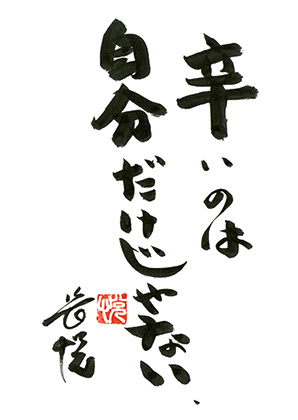 辛いのは
自分だけじゃない